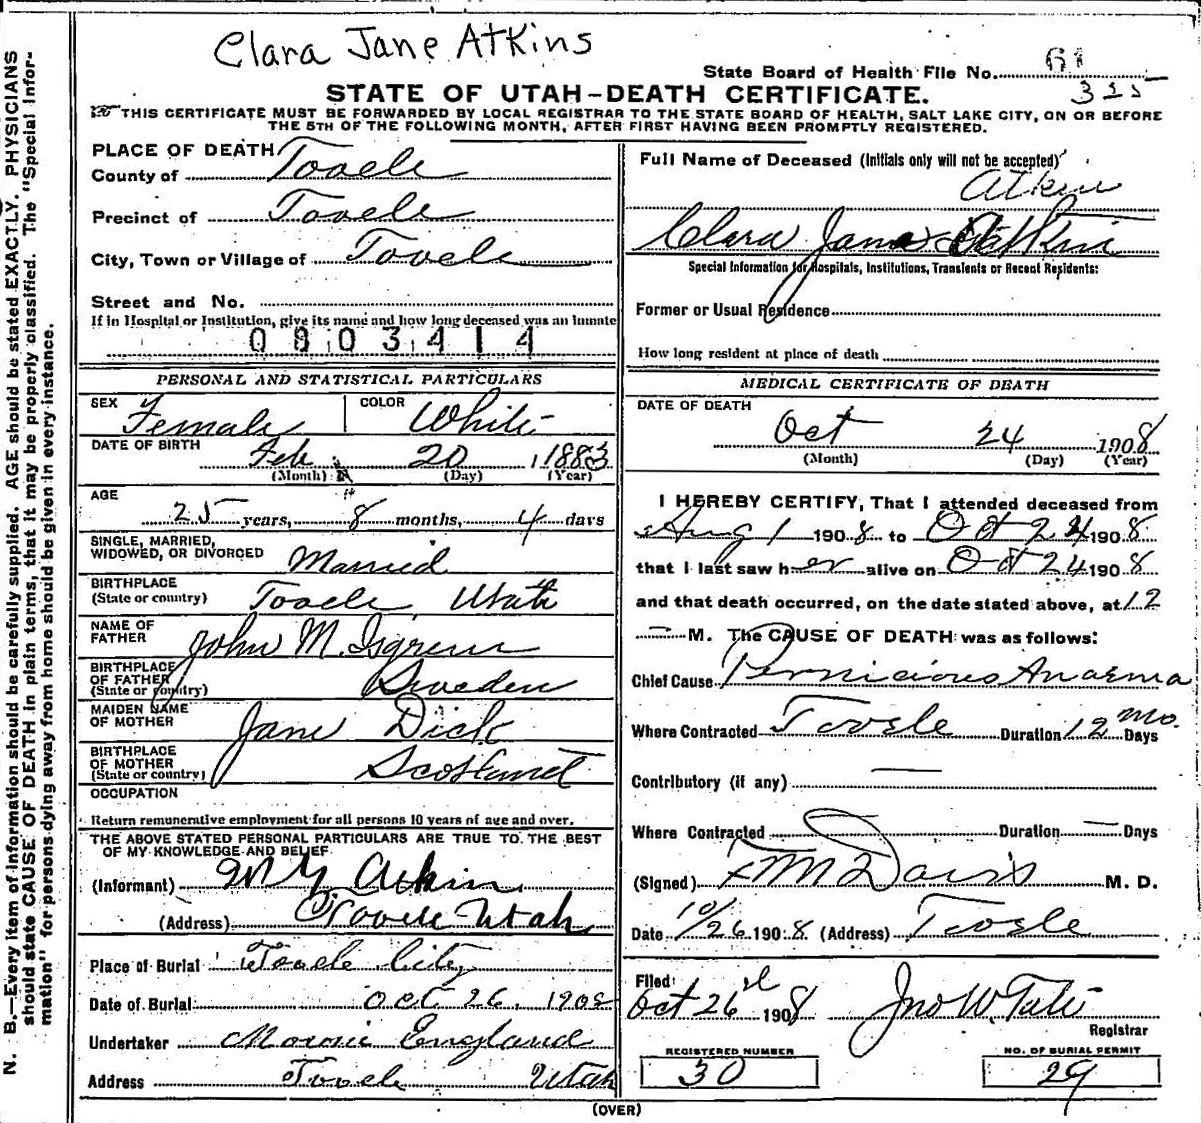 Clara Jane Atkins
State Board of Health File No. 61
325
STATE OF UTAH–DEATH CERTIFICATE.
THIS CERTIFICATE MUST BE FORWARDED BY LOCAL REGISTRAR TO THE STATE BOARD OF HEALTH, SALT LAKE CITY, ON OR BEFORE
THE 5TH OF THE FOLLOWING MONTH, AFTER FIRST HAVING BEEN PROMPTLY REGISTERED.
PLACE OF DEATH
County of Tooele
Precinct of Tooele
City, Town or Village of Tooele
Street and No.
If in Hospital or Institution, give its name and how long deceased was an inmate
0803414
PERSONAL AND STATISTICAL PARTICULARS
SEX Female COLOR White
DATE OF BIRTH Feb 20, 1883
(Month) (Day) (Year)
AGE
25 years, 8 months, 4 days
SINGLE, MARRIED,
WIDOWED, OR DIVORCED Married
BIRTHPLACE
(State or country) Tooele Utah
NAME OF
FATHER John M. Isgreen
BIRTHPLACE
OF FATHER
(State or country) Sweden
MAIDEN NAME
OF MOTHER Jane Dick
BIRTHPLACE
OF MOTHER
(State or country) Scotland
OCCUPATION
Return remunerative employment for all persons 10 years of age and over.
THE ABOVE STATED PERSONAL PARTICULARS ARE TRUE TO THE BEST
OF MY KNOWLEDGE AND BELIEF
(Informant) Atkin
(Address) Tooele Utah
Place of Burial Tooele City
Date of Burial Oct 26, 1908
Undertaker England
Address Tooele Utah
Full Name of Deceased (Initials only will not be accepted)
Atkin
Clara Jane Atkin
Special Information for Hospitals, Institutions, Transients or Recent Residents:
Former or Usual Residence
How long resident at place of death
MEDICAL CERTIFICATE OF DEATH
DATE OF DEATH
Oct 24 1908
(Month) (Day) (Year)
I HEREBY CERTIFY, That I attended deceased from
Aug 1 1908 to Oct 24 1908
that I last saw her alive on Oct 24 1908
and that death occurred, on the date stated above, at 12
— M. The CAUSE OF DEATH was as follows:
Chief Cause Pernicious Anaema
Where Contracted Tooele Duration 12 Mo. Days
Contributory (if any) —
Where Contracted Duration — Days
(Signed) F M Davis M. D.
Date 10/26 1908 (Address) Tooele
Filed
Oct 26 1908 Jno W. Tate
Registrar
REGISTERED NUMBER NO. OF BURIAL PERMIT
30 29
(OVER)
N. B.—Every item of information should be carefully supplied. AGE should be stated EXACTLY. PHYSICIANS
should state CAUSE OF DEATH in plain terms, that it may be properly classified. The "Special Infor-
mation" for persons dying away from home should be given in every instance.